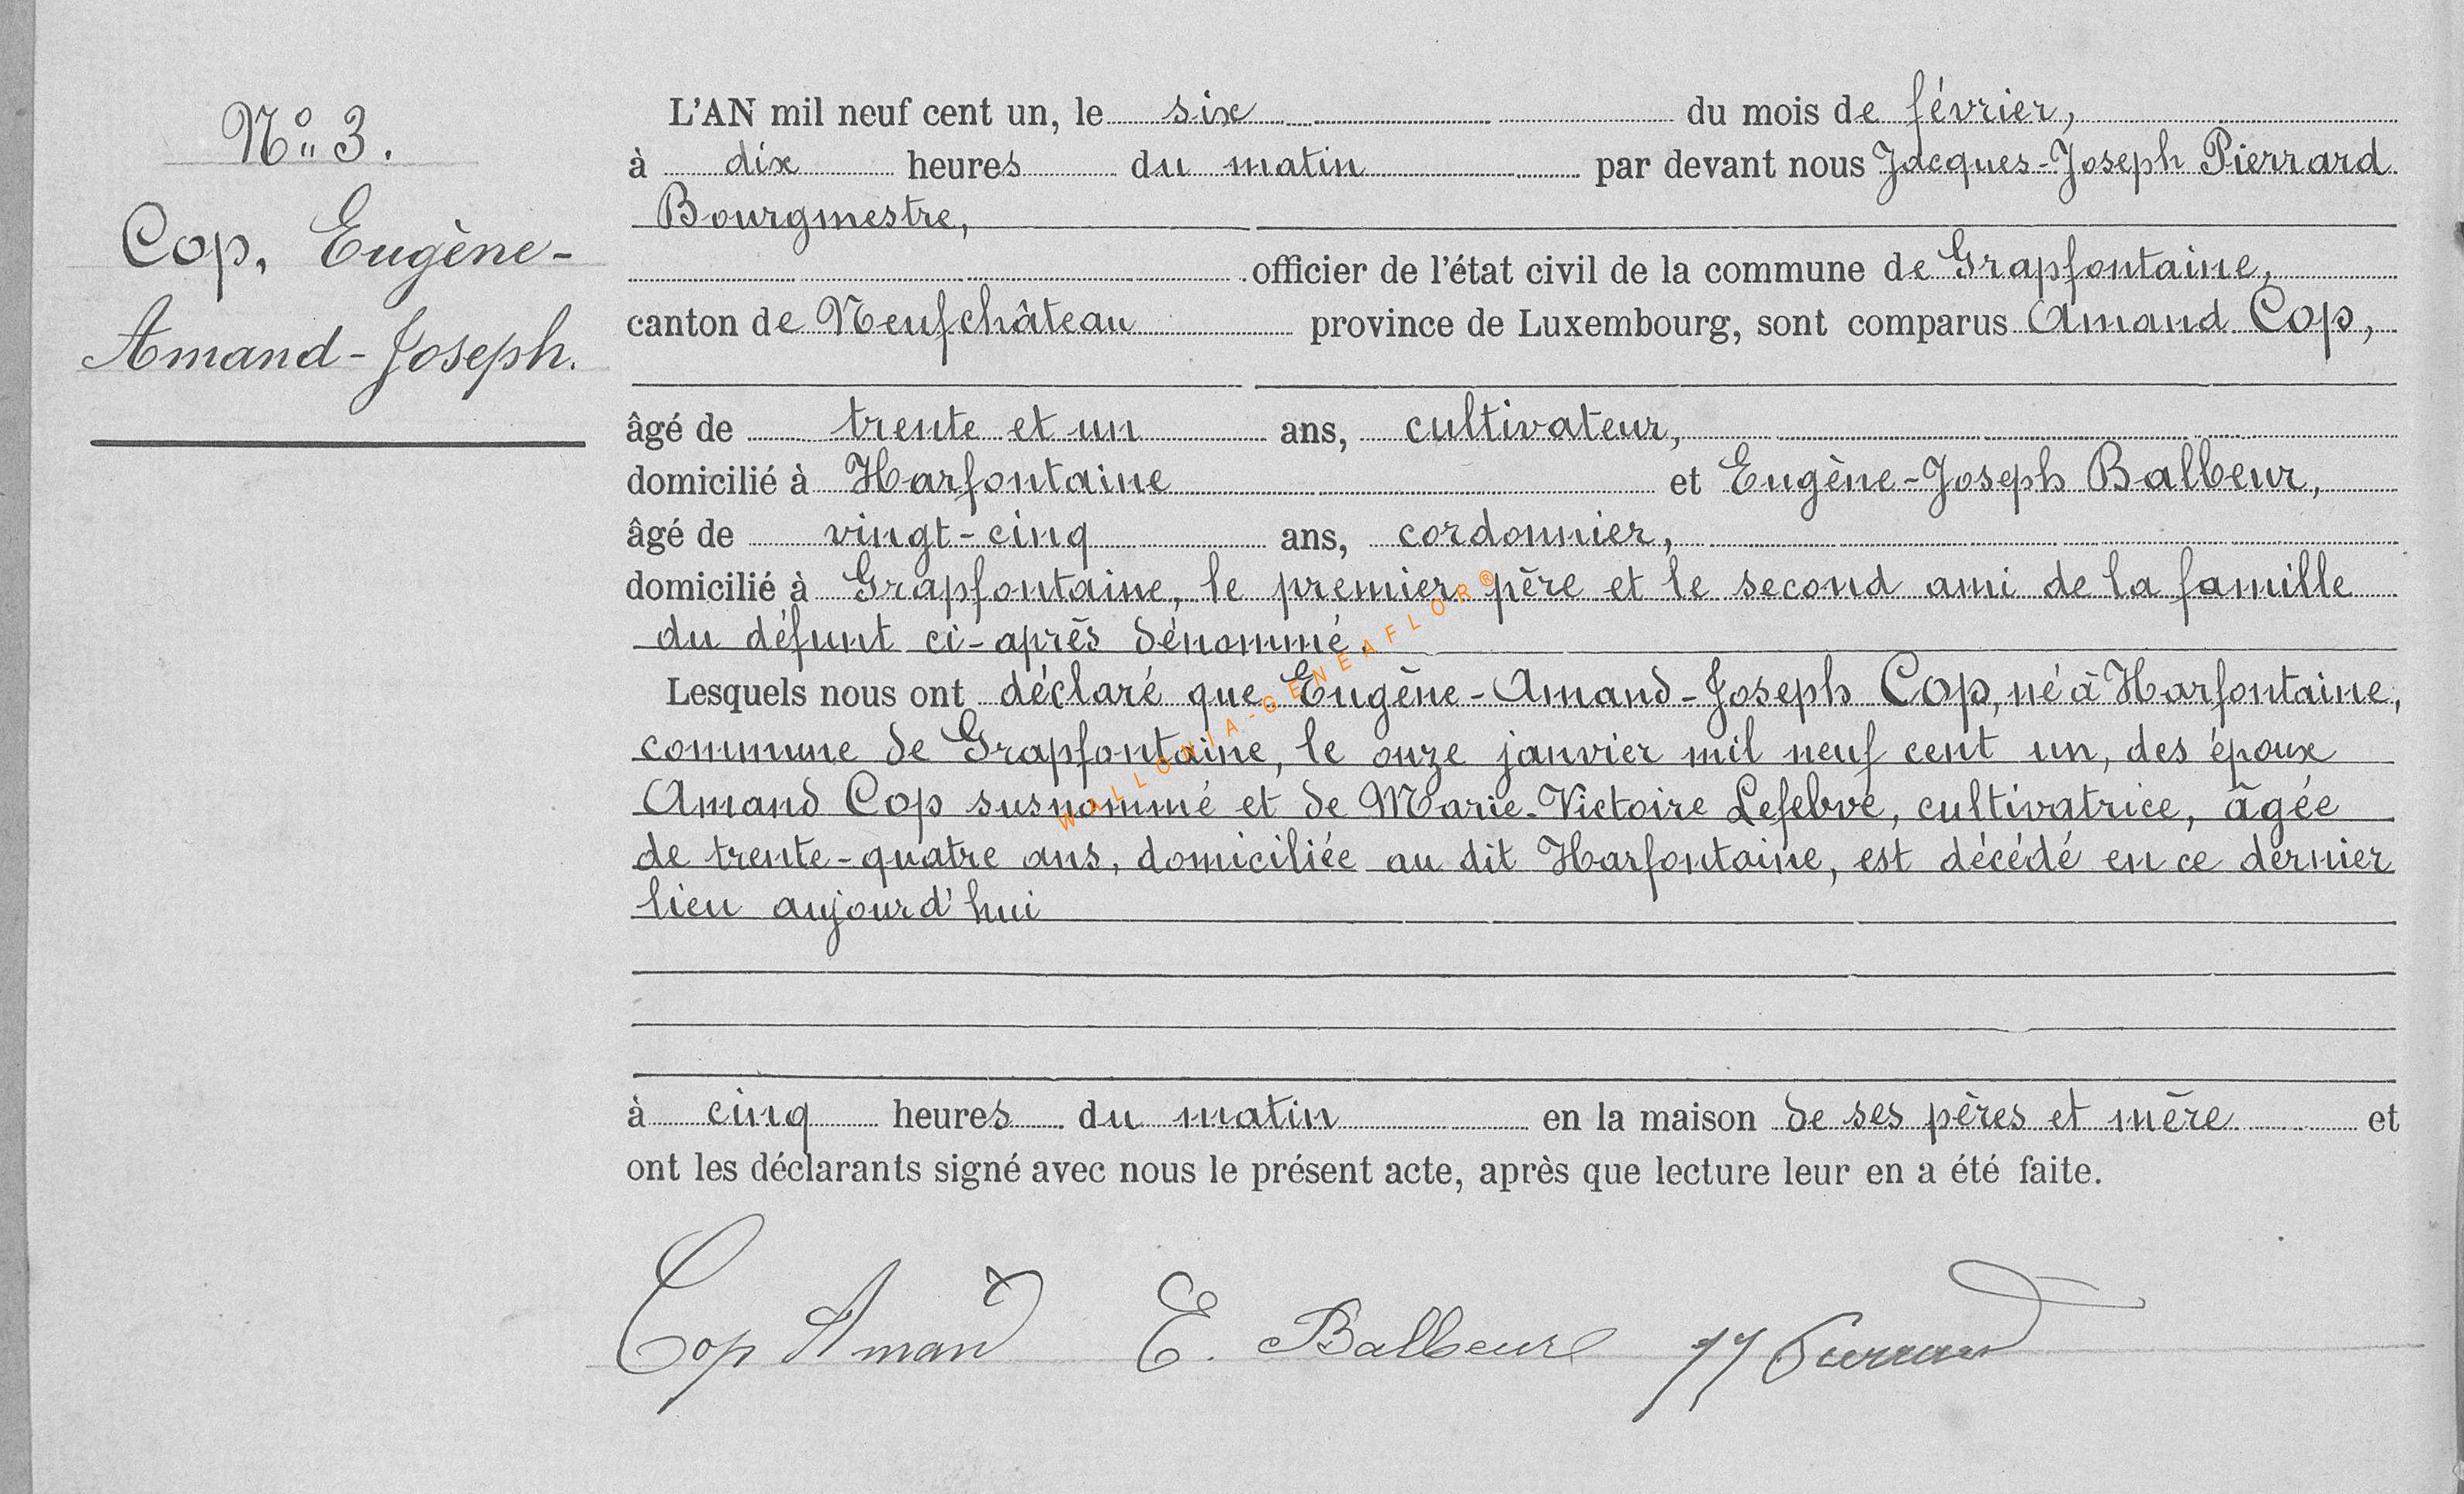 N° 3.
Cop, Eugène-
Amand-Joseph.
L'AN mil neuf cent un, le six du mois de février,
à dix heures du matin par devant nous Jacques-Joseph Pierrard
Bourgmestre,
officier de l'état civil de la commune de Grapfontaine,
canton de Neufchâteau province de Luxembourg, sont comparus Amand Cop,
âgé de trente et un ans, cultivateur,
domicilié à Harfontaine et Eugène-Joseph Balbeur,
âgé de vingt-cinq ans, cordonnier,
domicilié à Grapfontaine, le premier père et le second ami de la famille
du défunt ci-après dénommé.
Lesquels nous ont déclaré que Eugène-Amand-Joseph Cop, né à Harfontaine,
commune de Grapfontaine, le onze janvier mil neuf cent un, des époux
Amand Cop susnommé et de Marie-Victoire Lefebvre, cultivatrice, âgée
de trente-quatre ans, domiciliée au dit Harfontaine, est décédé en ce dernier
lieu aujourd'hui
à cinq heures du matin en la maison de ses pères et mère et
ont les déclarants signé avec nous le présent acte, après que lecture leur en a été faite.
Cop Amand E. Balbeur JJ Pierrard
WALLONIA-GENEAFLOR®